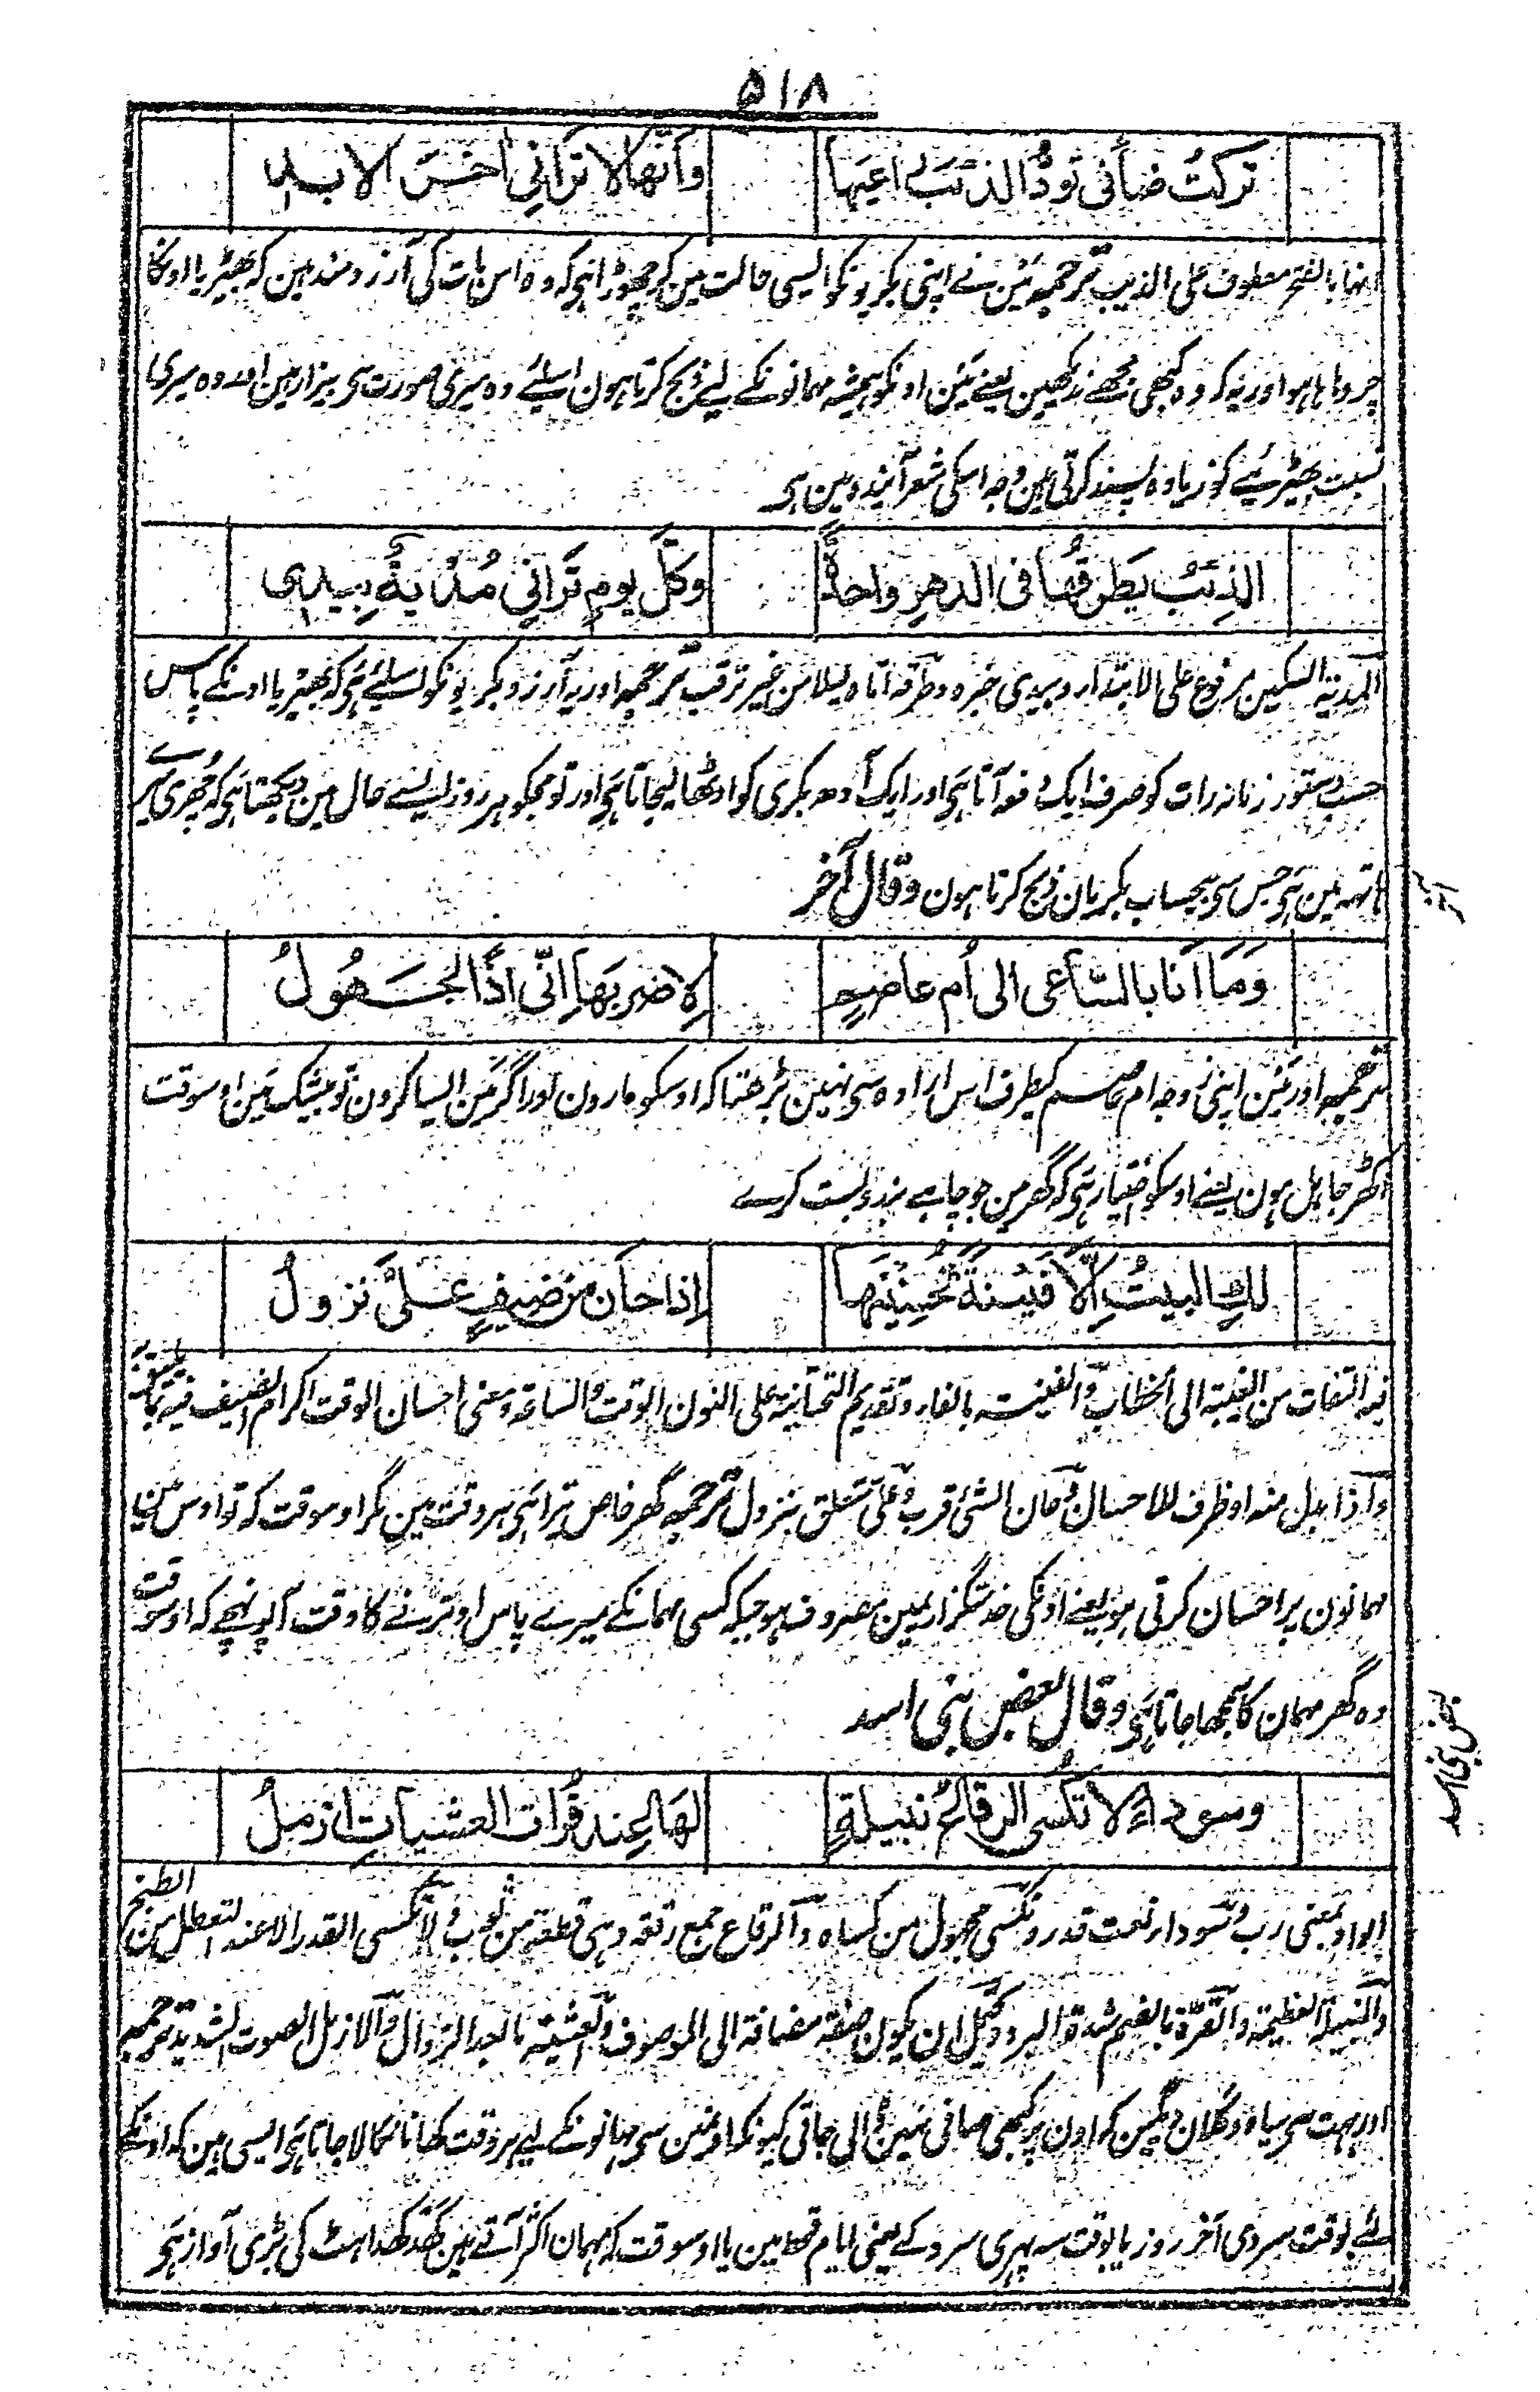 ۵۱۸
تركتُ ضأنى تودُّ الذئبَ راعيَها وأنّها لا تراني اٰخرَ الابدِ
انها بالفتح معطوف على الذيب ترجمہ مَین نے اپنی بکریونکو ایسی حالت مین کر چھوڑا ہی کہ وہ اس بات کی آرزومند ہین کہ بھیڑیا اونکا
چرواہا ہو اور یہ کہ وہ کبھی مجھے ندکھین یعنے مَین اونکو ہمیشہ مہمانونکے لیے ذبح کرتا ہون اسلئے وہ میری صورت سی بیزار ہین اور وہ میری
نسبت بھیڑیے کو زیادہ پسند کرتی ہین وجہ اسکی شعر آیندہ مین ہی
الذِئبُ يَطرقُها فى الدهرِ واحدةً وكلّ يومٍ تراني مُدْيةٌ بِيدِى
المدیة السکین مرفوع علی الابتداء و بیدی خبره وطرقه اتاه لیلا من غیر ترقب ترجمہ اور یہ آرزو بکریونکو اسلئے ہی کہ بھیڑیا اونکے پاس
حسب دستور زمانہ رات کو صرف ایک دفعہ آتا ہی اور ایک آدھ بکری کو اوٹھا لیجاتا ہی اور تو مجکو ہر روز ایسے حال مین دیکھتا ہی کہ چھری میرے
ہاتھہ مین ہی جس سی بیحساب بکریان ذبح کرتا ہون وقال آخر
آخر
وَمَا اَنا بالسّاعى الى اُم عاصمٍ لِاضربَها اِنّى اذًا لجَهُولُ
ترجمہ اور مَین اپنی زوجہ ام عاصم کیطرف اس ارادہ سی نہین بڑھتا کہ اوسکو مارون اور اگر مَین ایسا کرون تو بیشک مَین اوسوقت
اکھڑ جاہل ہون یعنے اوسکو اختیار ہی کہ گھر مین جو چاہے بندوبست کرے
لكِ البيتُ اِلّا فَيْنةً تُحسِنِينَها اِذا حان من ضيفٍ علىَّ نزولُ
فیه التفات من الغیبة الی الخطاب والفینہ بالفاء وتقدیم التحتانیة علی النون الوقت والساعة ومعنی احسان الوقت اکرام الضیف فیه
واذا بدل منه او ظرف للاحسان وحان الشئ قرب وعلیّ متعلق بنزول ترجمہ گھر خاص تیرا ہی ہروقت مین مگر اوسوقت کہ تو اوس مین
مہمانون پر احسان کرتی ہو یعنے اونکی خدمتگزاریمین مصروف ہو جبکہ کسی مہمانکے میرے پاس اوترنے کا وقت آپہونچے کہ اوسوقت
وہ گھر مہمان کا سمجھا جاتا ہی وقال بعض بنی اسد
بعض بنی اسد
وسوداءَ لا تُكسى الرقاعَ نبيلةٍ لهَا عِند قُرّات العشياتِ ازملُ
الواو بمعنی رب وسوداء نعت قدر وتکسی مجہول من کساہ والرقاع جمع رقعة وھی قطعة من ثوب ولا تکسی القدر الا عند تعطل من الطبخ
والنبیلة العظیمة والقرّة بالضم شدة البرد ویحتمل ان یکون صفة مضافة الی الموصوف والعشیة ما بعد الزوال والازمل الصوت الشدید ترجمہ
اور بہت سی سیاہ و کلان دیگین کہ اون پر کبھی صافی نہین ڈالی جاتی کیونکہ اونمین سی مہمانونکے لیے ہر وقت کھانا نکالا جاتا ہی ایسی ہین کہ اونکے
لئے بوقت سردی آخر روز یا بوقت سہ پہری سرد کے یعنی ایام قحط مین یا اوسوقت کہ مہمان اکثر آتے ہین کھدکھداہٹ کی بڑی آواز ہی